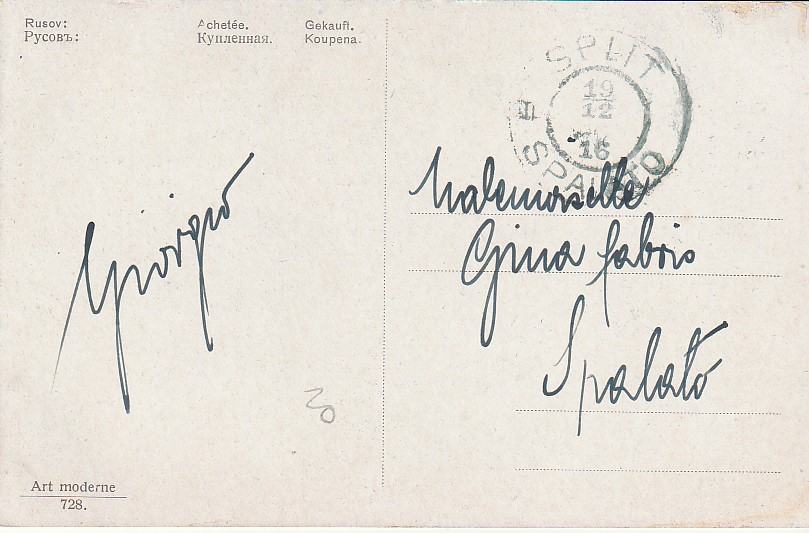 Rusov: Achetée. Gekauft.
Русовъ: Купленная. Koupena.
SPLIT
19
12
16
SPALATO
Mademoiselle
Gina Fabris
Spalato
Giorgio
20
Art moderne
728.